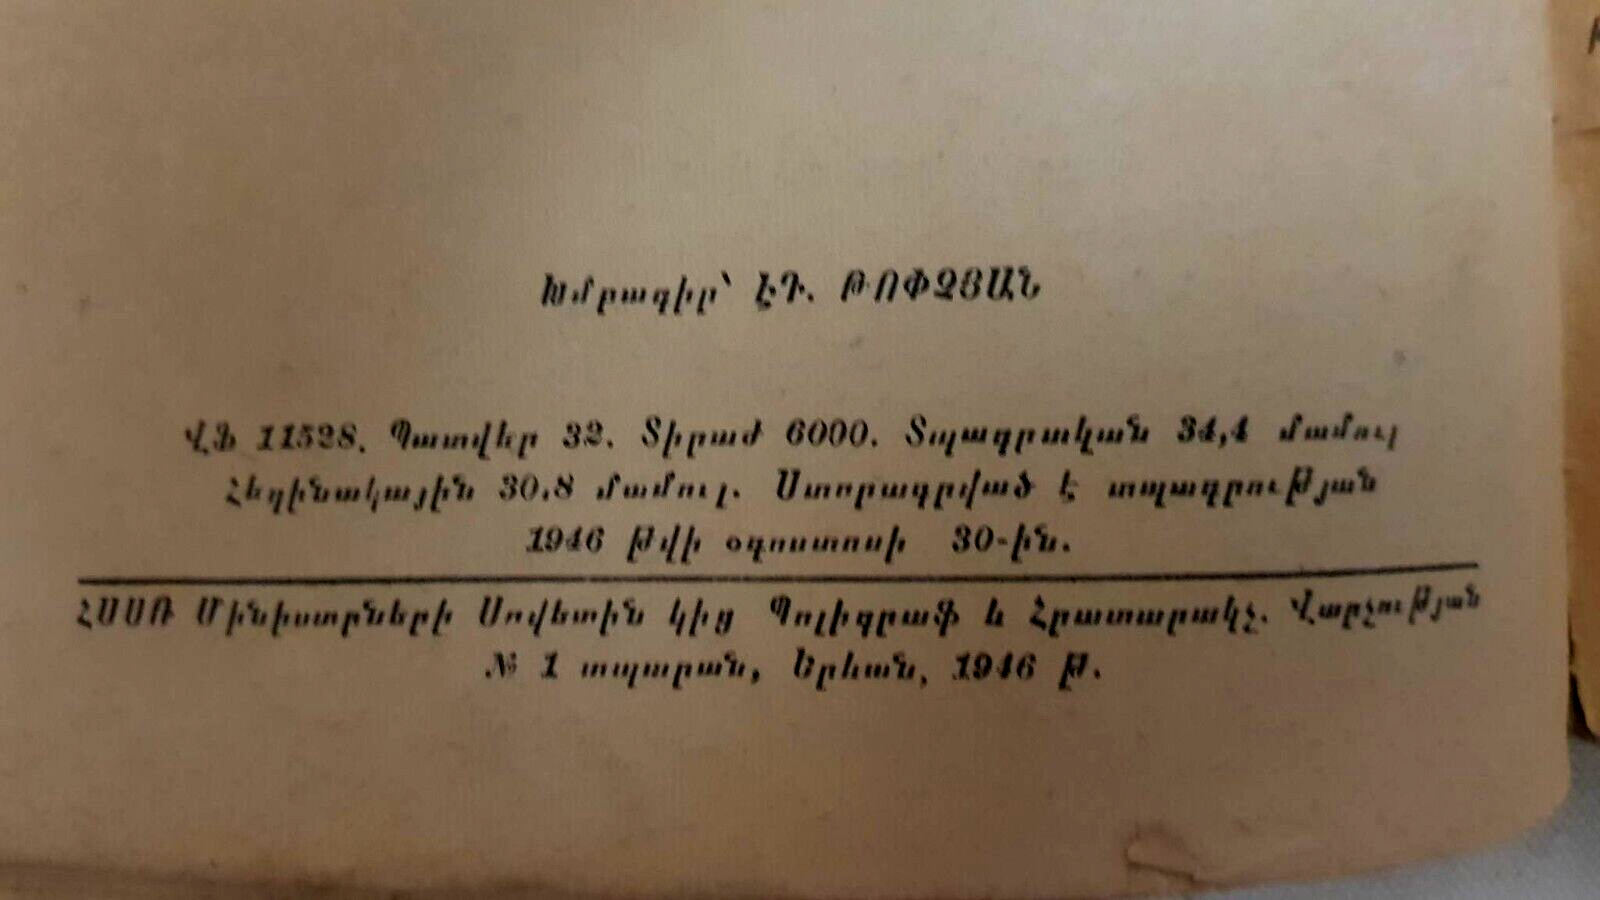 Խմբագիր՝ ԷԴ. ԹՈՓՉՅԱՆ
ՎՖ 11528. Պատվեր 32. Տիրաժ 6000. Տպագրական 34,4 մամուլ
Հեղինակային 30,8 մամուլ. Ստորագրված է տպագրության
1946 թվի օգոստոսի 30-ին.
ՀՍՍՌ Մինիստրների Սովետին կից Պոլիգրաֆ և Հրատարակչ. Վարչության
№ 1 տպարան, Երևան, 1946 թ.